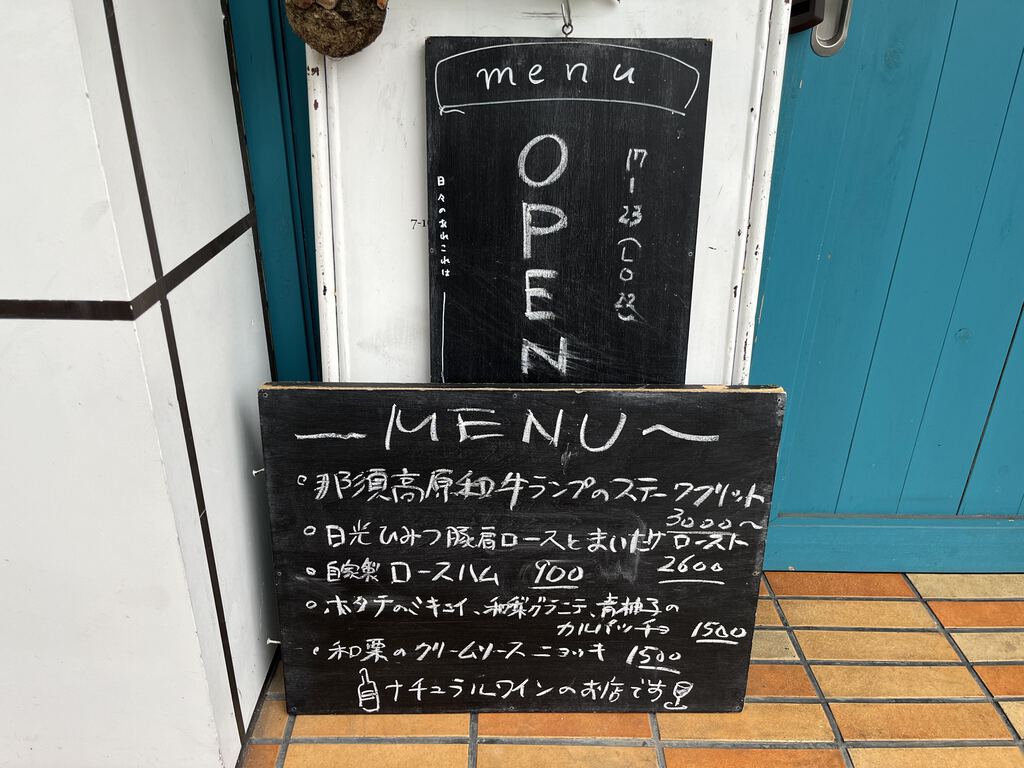 menu
OPEN
17-23 (LO22)
日々のあれこれは
7-1
～MENU～
○那須高原和牛ランプのステークフリット
3000～
○日光ひみつ豚肩ロースとまいたけロースト
2600
○自家製ロースハム 900
○ホタテのミキュイ、和梨グラニテ、青柚子の
カルパッチョ 1500
○和栗のクリームソースニョッキ 1500
ナチュラルワインのお店です